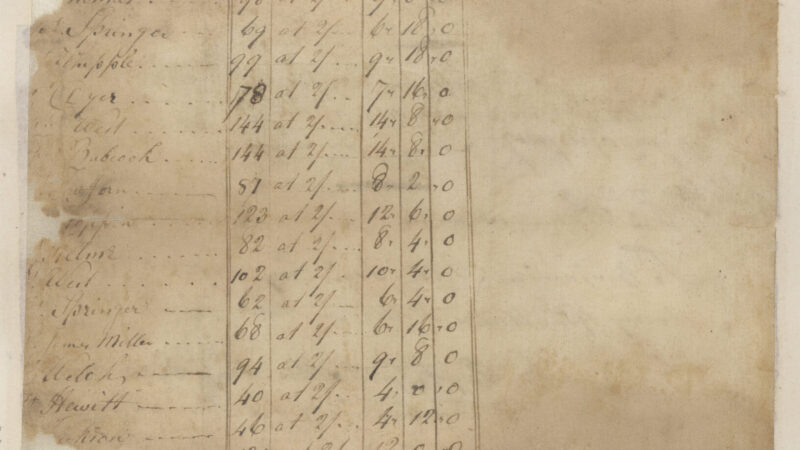 98 at 2/
Springer 69 at 2/ 6 18 0
Whipple 99 at 2/ 9 18 0
Dyer 78 at 2/ 7 16 0
West 144 at 2/ 14 8 0
Babcock 144 at 2/ 14 8 0
87 at 2/ 8 2 0
123 at 2/ 12 6 0
Helme 82 at 2/ 8 4 0
West 102 at 2/ 10 4 0
Springer 62 at 2/ 6 4 0
James Miller 68 at 2/ 6 16 0
94 at 2/ 9 8 0
Hewitt 40 at 2/ 4 0 0
46 at 2/ 4 12 0
12 0 0